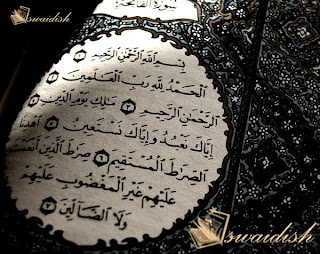 swaidish
سورة الفاتحة
بِسْمِ اللَّهِ الرَّحْمَٰنِ الرَّحِيمِ ۝١
الْحَمْدُ لِلَّهِ رَبِّ الْعَالَمِينَ ۝٢
الرَّحْمَٰنِ الرَّحِيمِ ۝٣ مَالِكِ يَوْمِ الدِّينِ ۝٤
إِيَّاكَ نَعْبُدُ وَإِيَّاكَ نَسْتَعِينُ ۝٥ اهْدِنَا
الصِّرَاطَ الْمُسْتَقِيمَ ۝٦ صِرَاطَ الَّذِينَ أَنْعَمْتَ
عَلَيْهِمْ غَيْرِ الْمَغْضُوبِ عَلَيْهِمْ
وَلَا الضَّالِّينَ ۝٧
swaidish